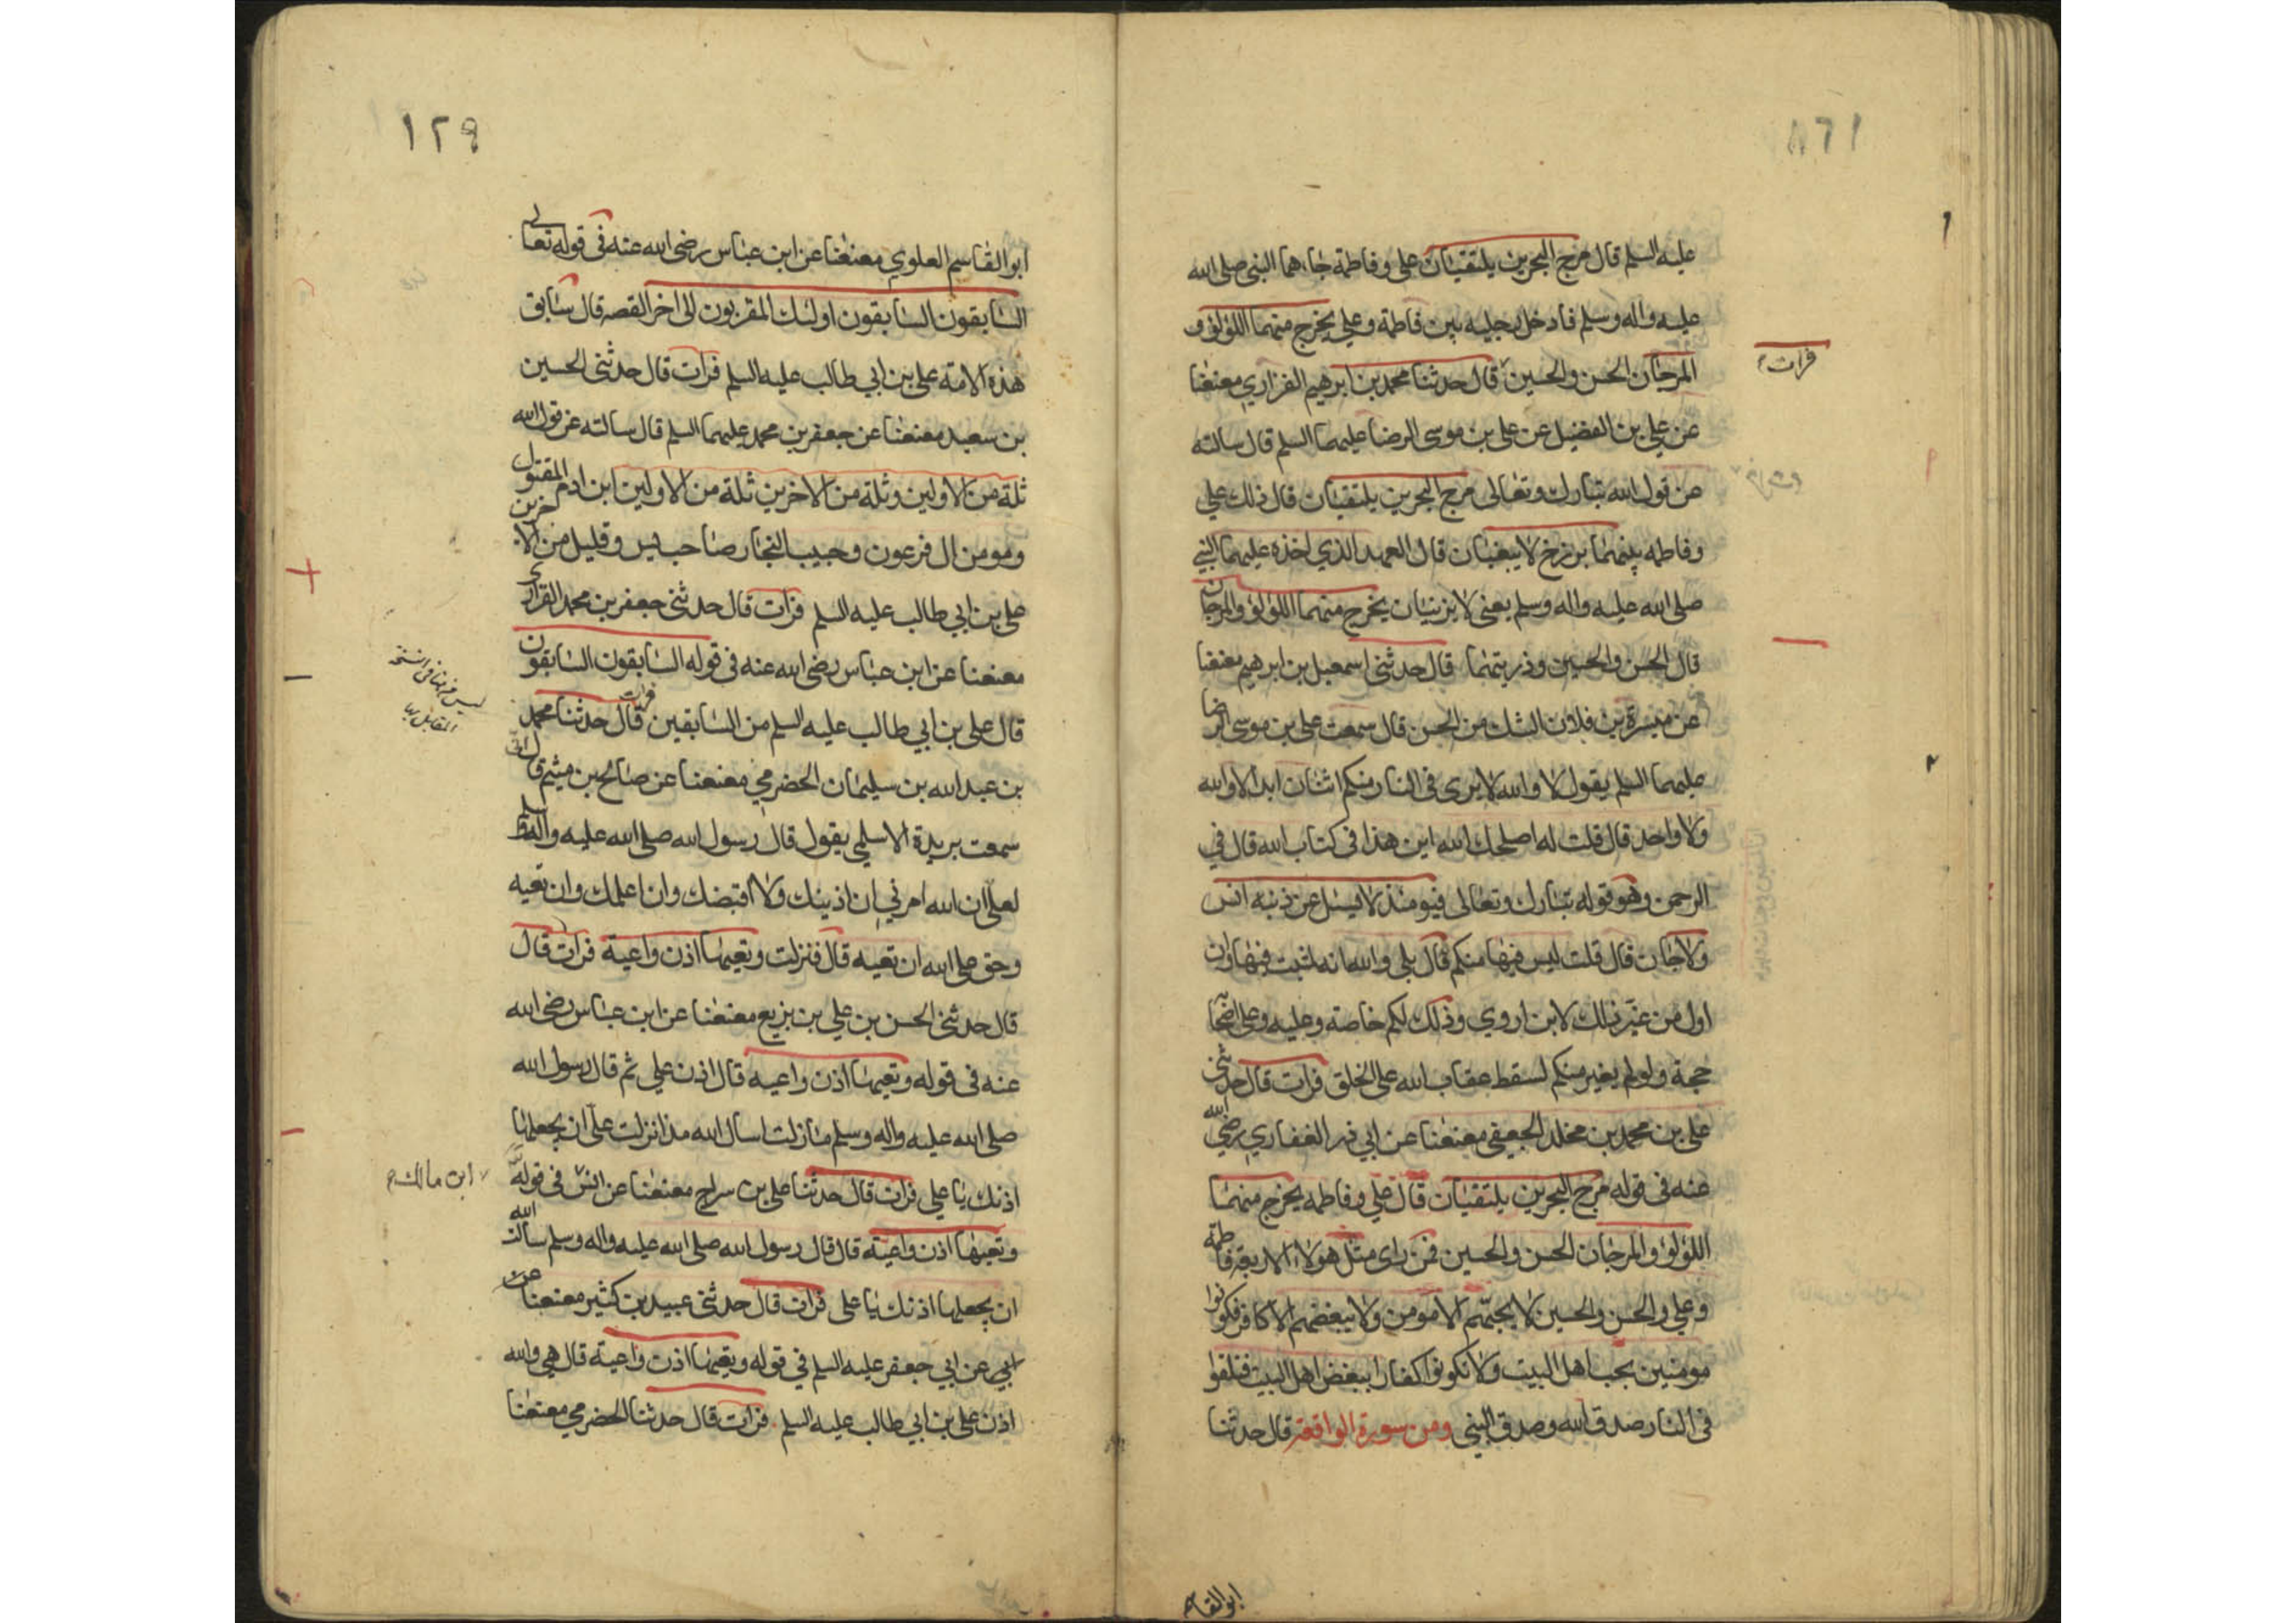 عليه السلم قال مرج البحرين يلتقيان علي وفاطمة جاءهما النبي صلى الله
عليه واله وسلم فادخل رجليه بين فاطمة وعلي يخرج منهما اللؤلؤ و
المرجان الحسن والحسين قال حدثنا محمد بن ابرهيم الفزاري معنعنا
فرات
عن علي بن الفضيل عن علي بن موسى الرضا عليهما السلم قال سالته
عن قول الله تبارك وتعالى مرج البحرين يلتقيان قال ذلك علي
وفاطمه بينهما برزخ لا يبغيان قال العهد الذي اخذه عليهما النبي
صلى الله عليه واله وسلم يعني لا يزنيان يخرج منهما اللؤلؤ والمرجان
قال الحسن والحسين وذريتهما قال حدثني اسمعيل بن ابرهيم معنعنا
عن ميسرة بن فلان الشك من الحسن قال سمعت علي بن موسى الرضا
عليهما السلم يقول لا والله لا يرى في النار منكم اثنان ابدا لا والله
ولا واحد قال قلت له اصلحك الله اين هذا في كتاب الله قال في
الرحمن وهو قوله تبارك وتعالى فيومئذ لا يسل عن ذنبه انس
ولا جان قال قلت ليس فيها منكم قال بلى والله انه لثبت فيها وان
اول من غير ذلك لابن اروي وذلك لكم خاصة وعليه وعلى اصحابه
حجة ولو لم يغير منكم لسقط عقاب الله على الخلق فرات قال حدثني
علي بن محمد بن مخلد الجعفي معنعنا عن ابي ذر الغفاري رضي الله
عنه في قوله مرج البحرين يلتقيان قال علي وفاطمه يخرج منهما
اللؤلؤ والمرجان الحسن والحسين فمن راى مثل هولاء الاربعة فاطمة
وعلي والحسن والحسين لا يحبهم الا مومن ولا يبغضهم الا كافر فكونوا
مومنين بحب اهل البيت ولا تكونوا كفارا ببغض اهل البيت فتلقوا
في النار صدق الله وصدق النبي ومن سورة الواقعة قال حدثنا
ابو القاسم
١٢٩
ابو القاسم العلوي معنعنا عن ابن عباس رضي الله عنه في قوله تعالى
السابقون السابقون اولئك المقربون الى اخر القصه قال سابق
هذه الامة علي بن ابي طالب عليه السلم فرات قال حدثني الحسين
بن سعيد معنعنا عن جعفر بن محمد عليهما السلم قال سالته عن قول الله
ثلة من الاولين وثلة من الاخرين ثلة من الاولين ابن ادم المقتول
ومومن ال فرعون وحبيب النجار صاحب يس وقليل من الاخرين
علي بن ابي طالب عليه السلم فرات قال حدثني جعفر بن محمد الفزاري
معنعنا عن ابن عباس رضي الله عنه في قوله السابقون السابقون
ليس فرات في النسخة
المقابل بها
قال علي بن ابي طالب عليه السلم من السابقين فرات قال حدثنا محمد
بن عبد الله بن سليمان الحضرمي معنعنا عن صالح بن ميثم قال
سمعت بريدة الاسلمي يقول قال رسول الله صلى الله عليه واله وسلم
لعلي ان الله امرني ان ادنيك ولا اقصيك وان اعلمك وان تعيه
وحق على الله ان تعيه قال فنزلت وتعيها اذن واعية فرات قال
قال حدثني الحسن بن علي بن بزيع معنعنا عن ابن عباس رضي الله
عنه في قوله وتعيها اذن واعيه قال اذن علي ثم قال رسول الله
صلى الله عليه واله وسلم ما زلت اسال الله مذ انزلت علي ان يجعلها
اذنك يا علي فرات قال حدثنا علي بن سراج معنعنا عن انس في قوله
ابن مالك
وتعيها اذن واعية قال قال رسول الله صلى الله عليه واله وسلم سالت الله
ان يجعلها اذنك يا علي فرات قال حدثني عبيد بن كثير معنعنا عن
ابي عن ابي جعفر عليه السلم في قوله وتعيها اذن واعية قال هي والله
اذن علي بن ابي طالب عليه السلم فرات قال حدثنا الحضرمي معنعنا